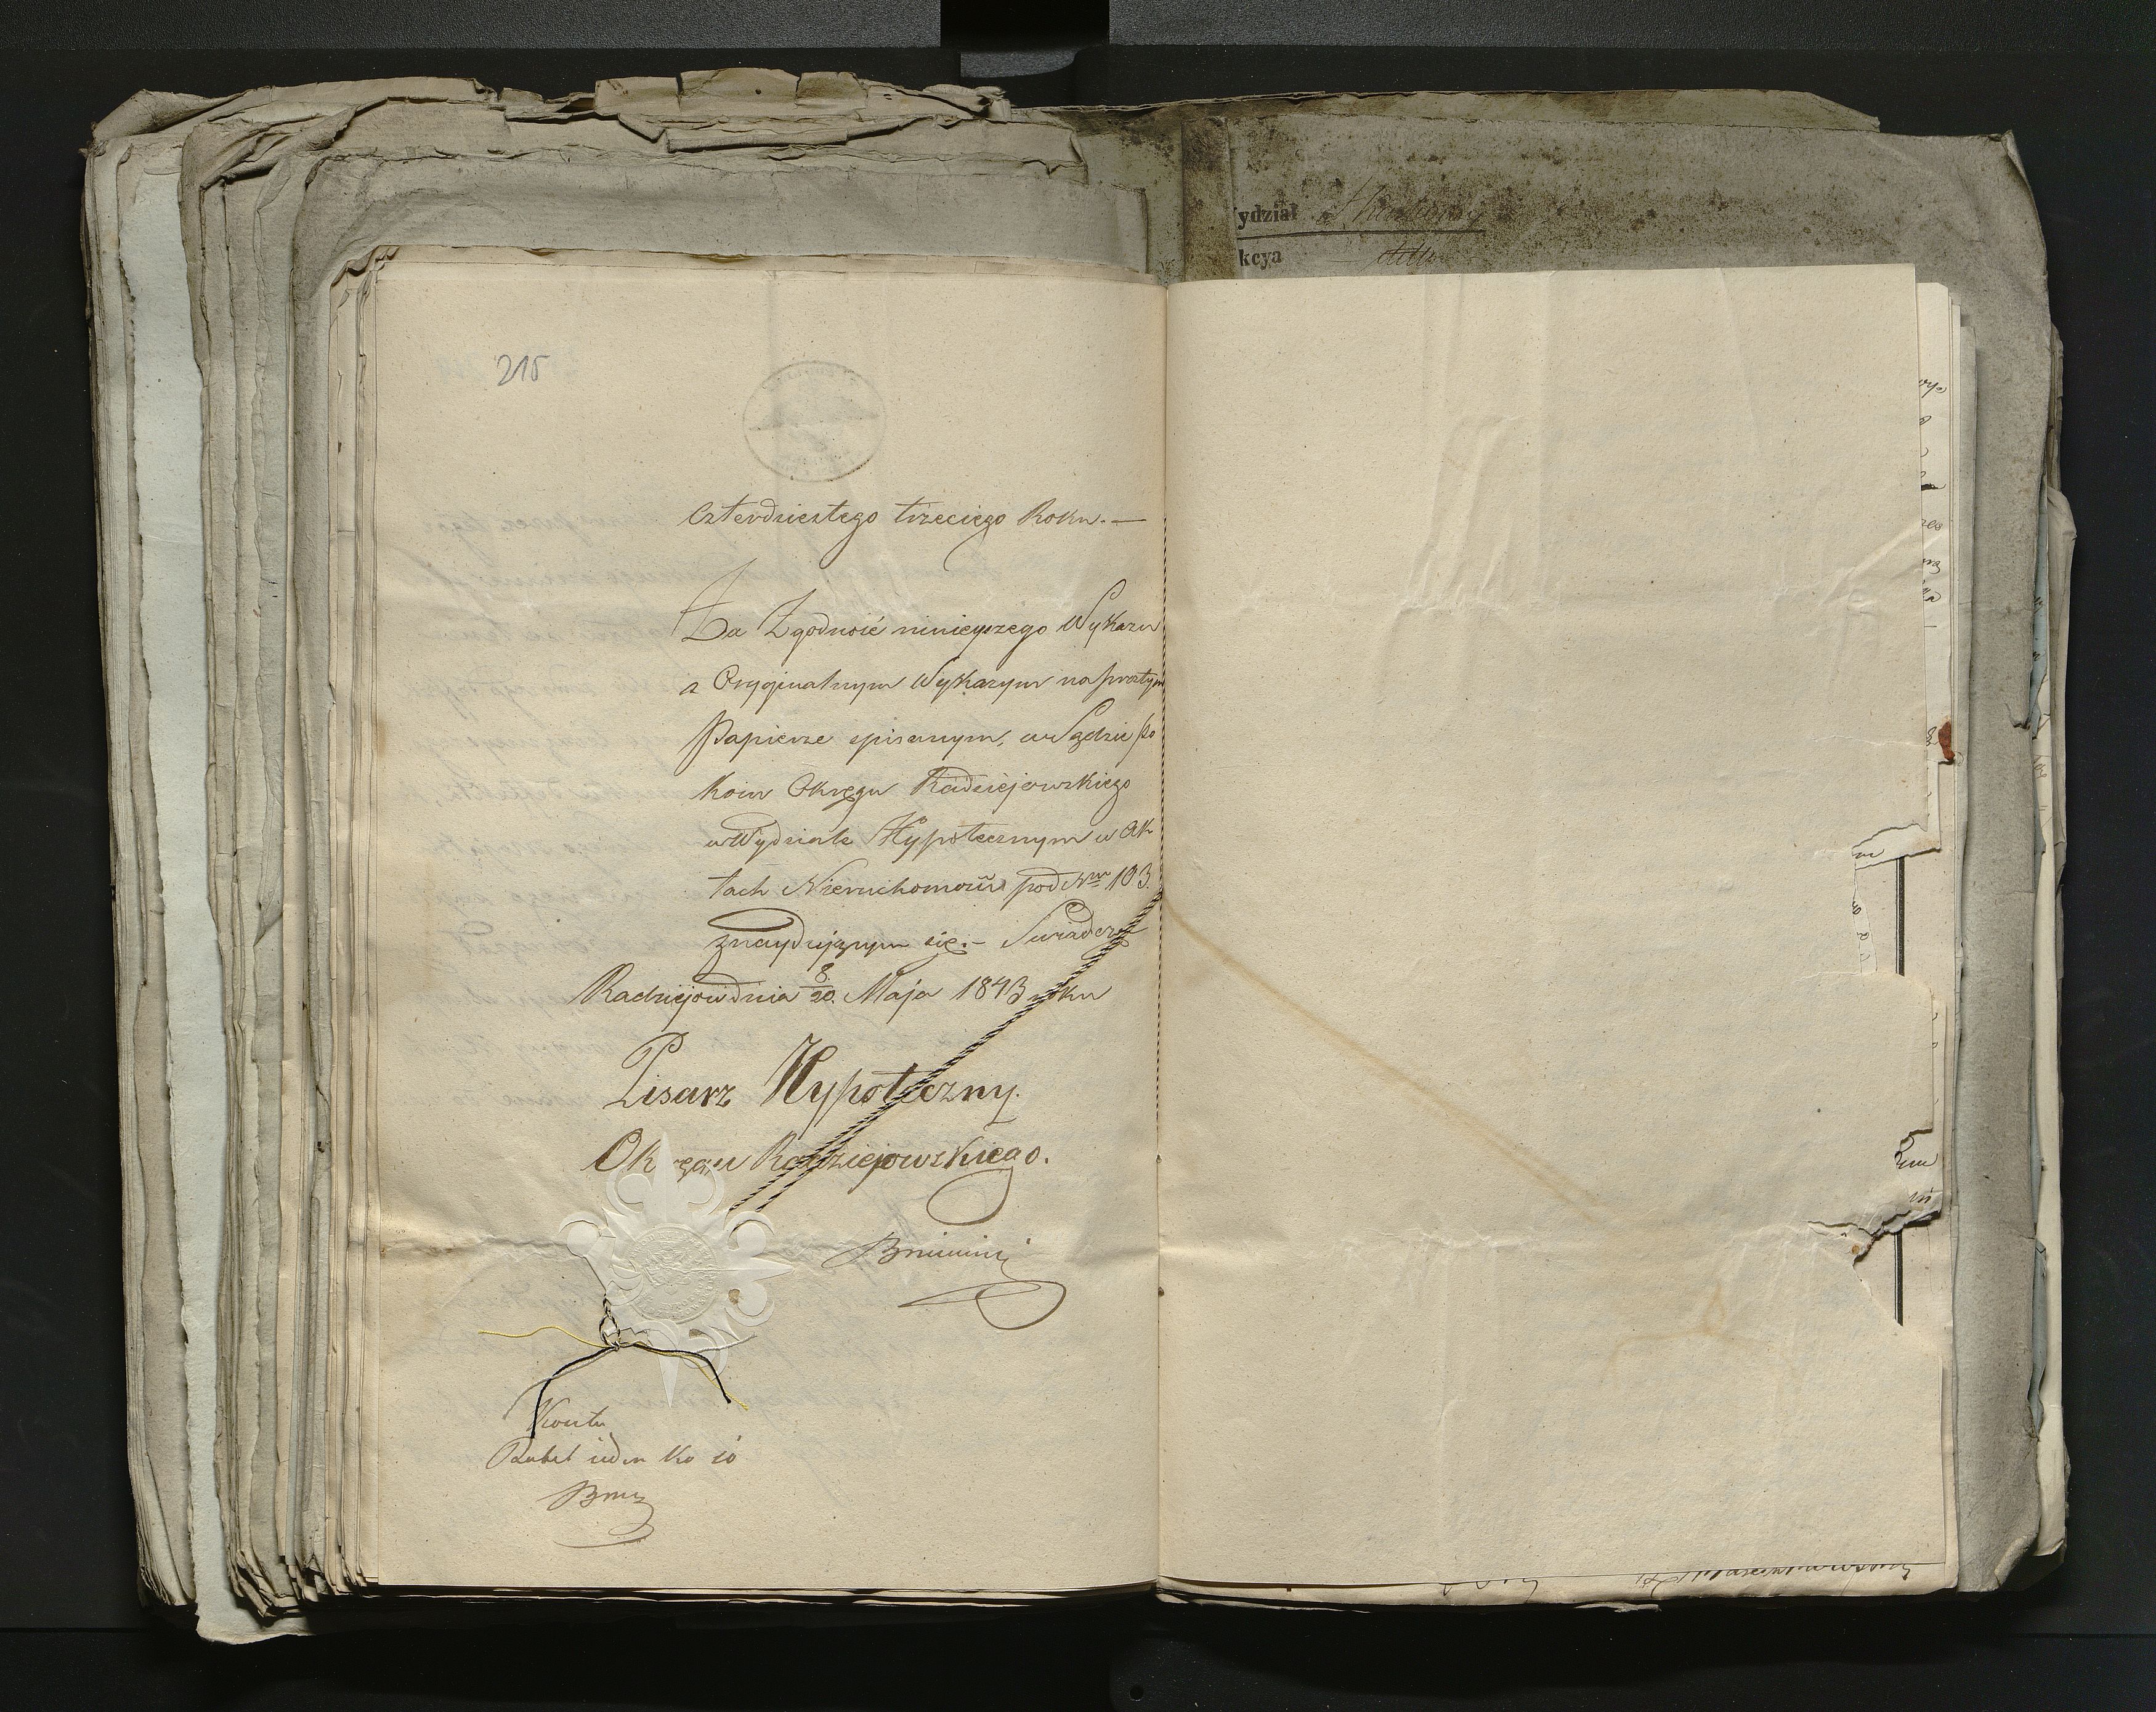 215
czterdziestego trzeciego Roku. —
Za Zgodność ninieyszego Wykazu
z Oryginalnym Wykazym na prostym
Papierze spisanym, w Sądzie Po
koiu Okręgu Radziejowskiego
w Wydziale Hypotecznym w Ak
tach Nieruchomości pod Nrm 103.
znaydującym się. – Swiadczę
Radziejow dnia 8/20. Maja 1843 roku
Pisarz Hypoteczny.
Okręgu Radziejowskiego.
Kosztu
Rubel ieden Ko
ydział
kcya